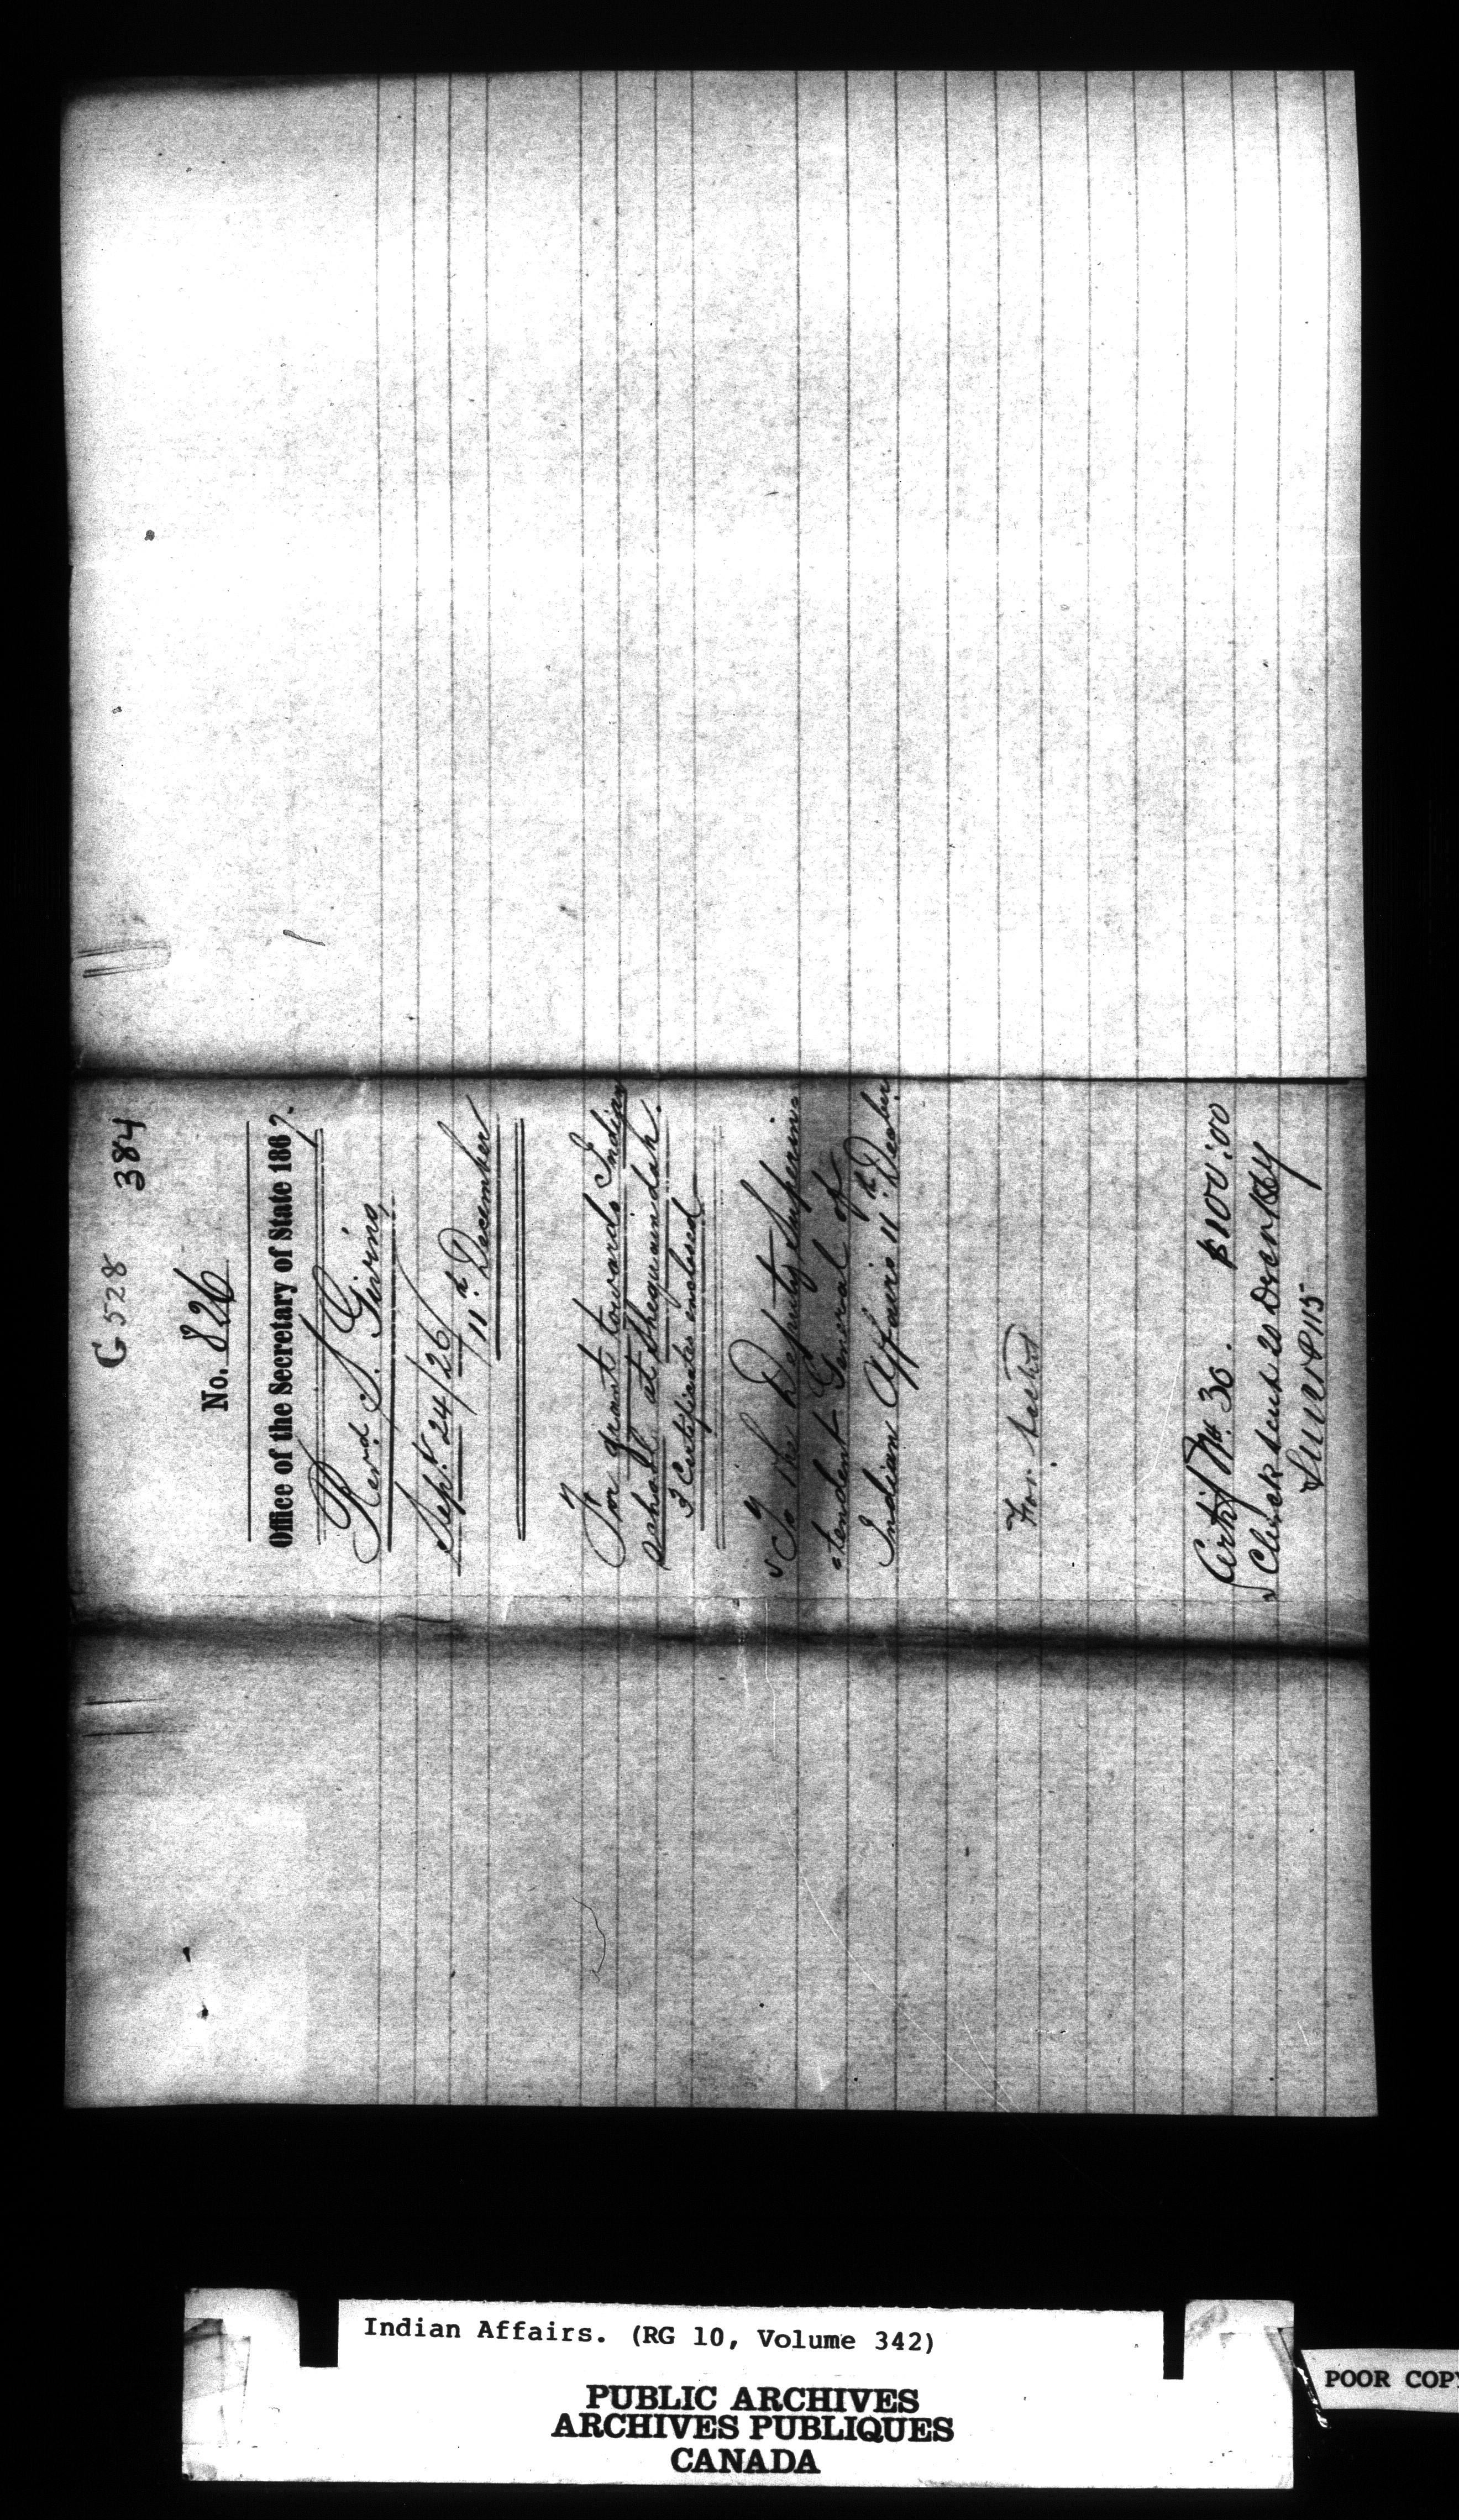 G 528 384
No. 826
Office of the Secretary of State 1867.
Revd. S. Givins,
Sept. 24/26/
11th December
For grant towards Indian
School at Sheguaindah.
3 Certificates enclosed
To the Deputy Superin-
-tendent General of
Indian Affairs 11th Decber
For
Certif No. 30. $100:00
Check sent 20 Decr 1867
Indian Affairs. (RG 10, Volume 342)
PUBLIC ARCHIVES
ARCHIVES PUBLIQUES
CANADA
POOR COPY